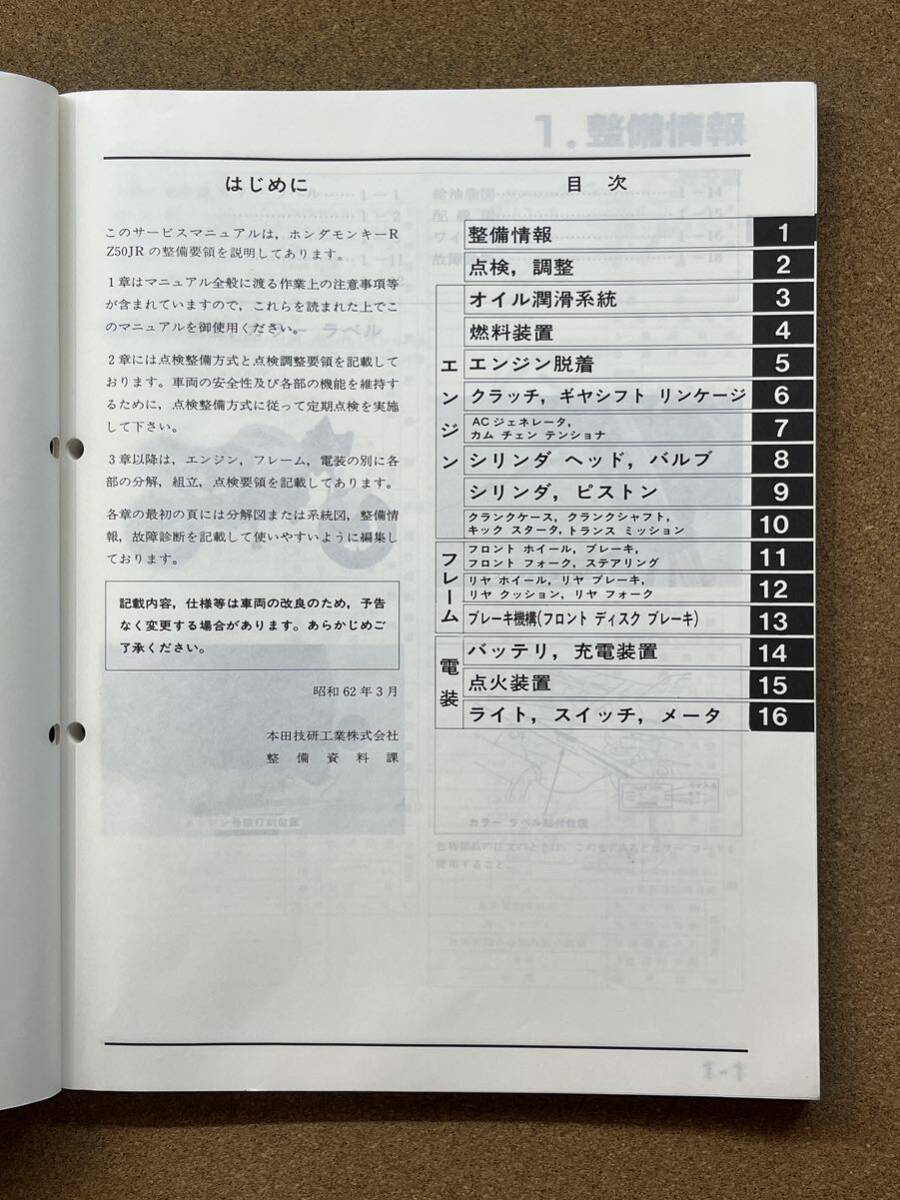 はじめに
このサービスマニュアルは，ホンダモンキーR
Z50JRの整備要領を説明してあります。
1章はマニュアル全般に渡る作業上の注意事項等
が含まれていますので，これらを読まれた上でこ
のマニュアルを御使用ください。
2章には点検整備方式と点検調整要領を記載して
おります。車両の安全性及び各部の機能を維持す
るために，点検整備方式に従って定期点検を実施
して下さい。
3章以降は，エンジン，フレーム，電装の別に各
部の分解，組立，点検要領を記載してあります。
各章の最初の頁には分解図または系統図，整備情
報，故障診断を記載して使いやすいように編集し
ております。
記載内容，仕様等は車両の改良のため，予告
なく変更する場合があります。あらかじめご
了承ください。
昭和62年3月
本田技研工業株式会社
整備資料課
目次
整備情報 1
点検，調整 2
エンジン
オイル潤滑系統 3
燃料装置 4
エンジン脱着 5
クラッチ，ギヤシフト リンケージ 6
ACジェネレータ，
カム チェン テンショナ 7
シリンダ ヘッド，バルブ 8
シリンダ，ピストン 9
クランクケース，クランクシャフト，
キック スタータ，トランス ミッション 10
フレーム
フロント ホイール，ブレーキ，
フロント フォーク，ステアリング 11
リヤ ホイール，リヤ ブレーキ，
リヤ クッション，リヤ フォーク 12
ブレーキ機構(フロント ディスク ブレーキ) 13
電装
バッテリ，充電装置 14
点火装置 15
ライト，スイッチ，メータ 16
1.整備情報
1-1